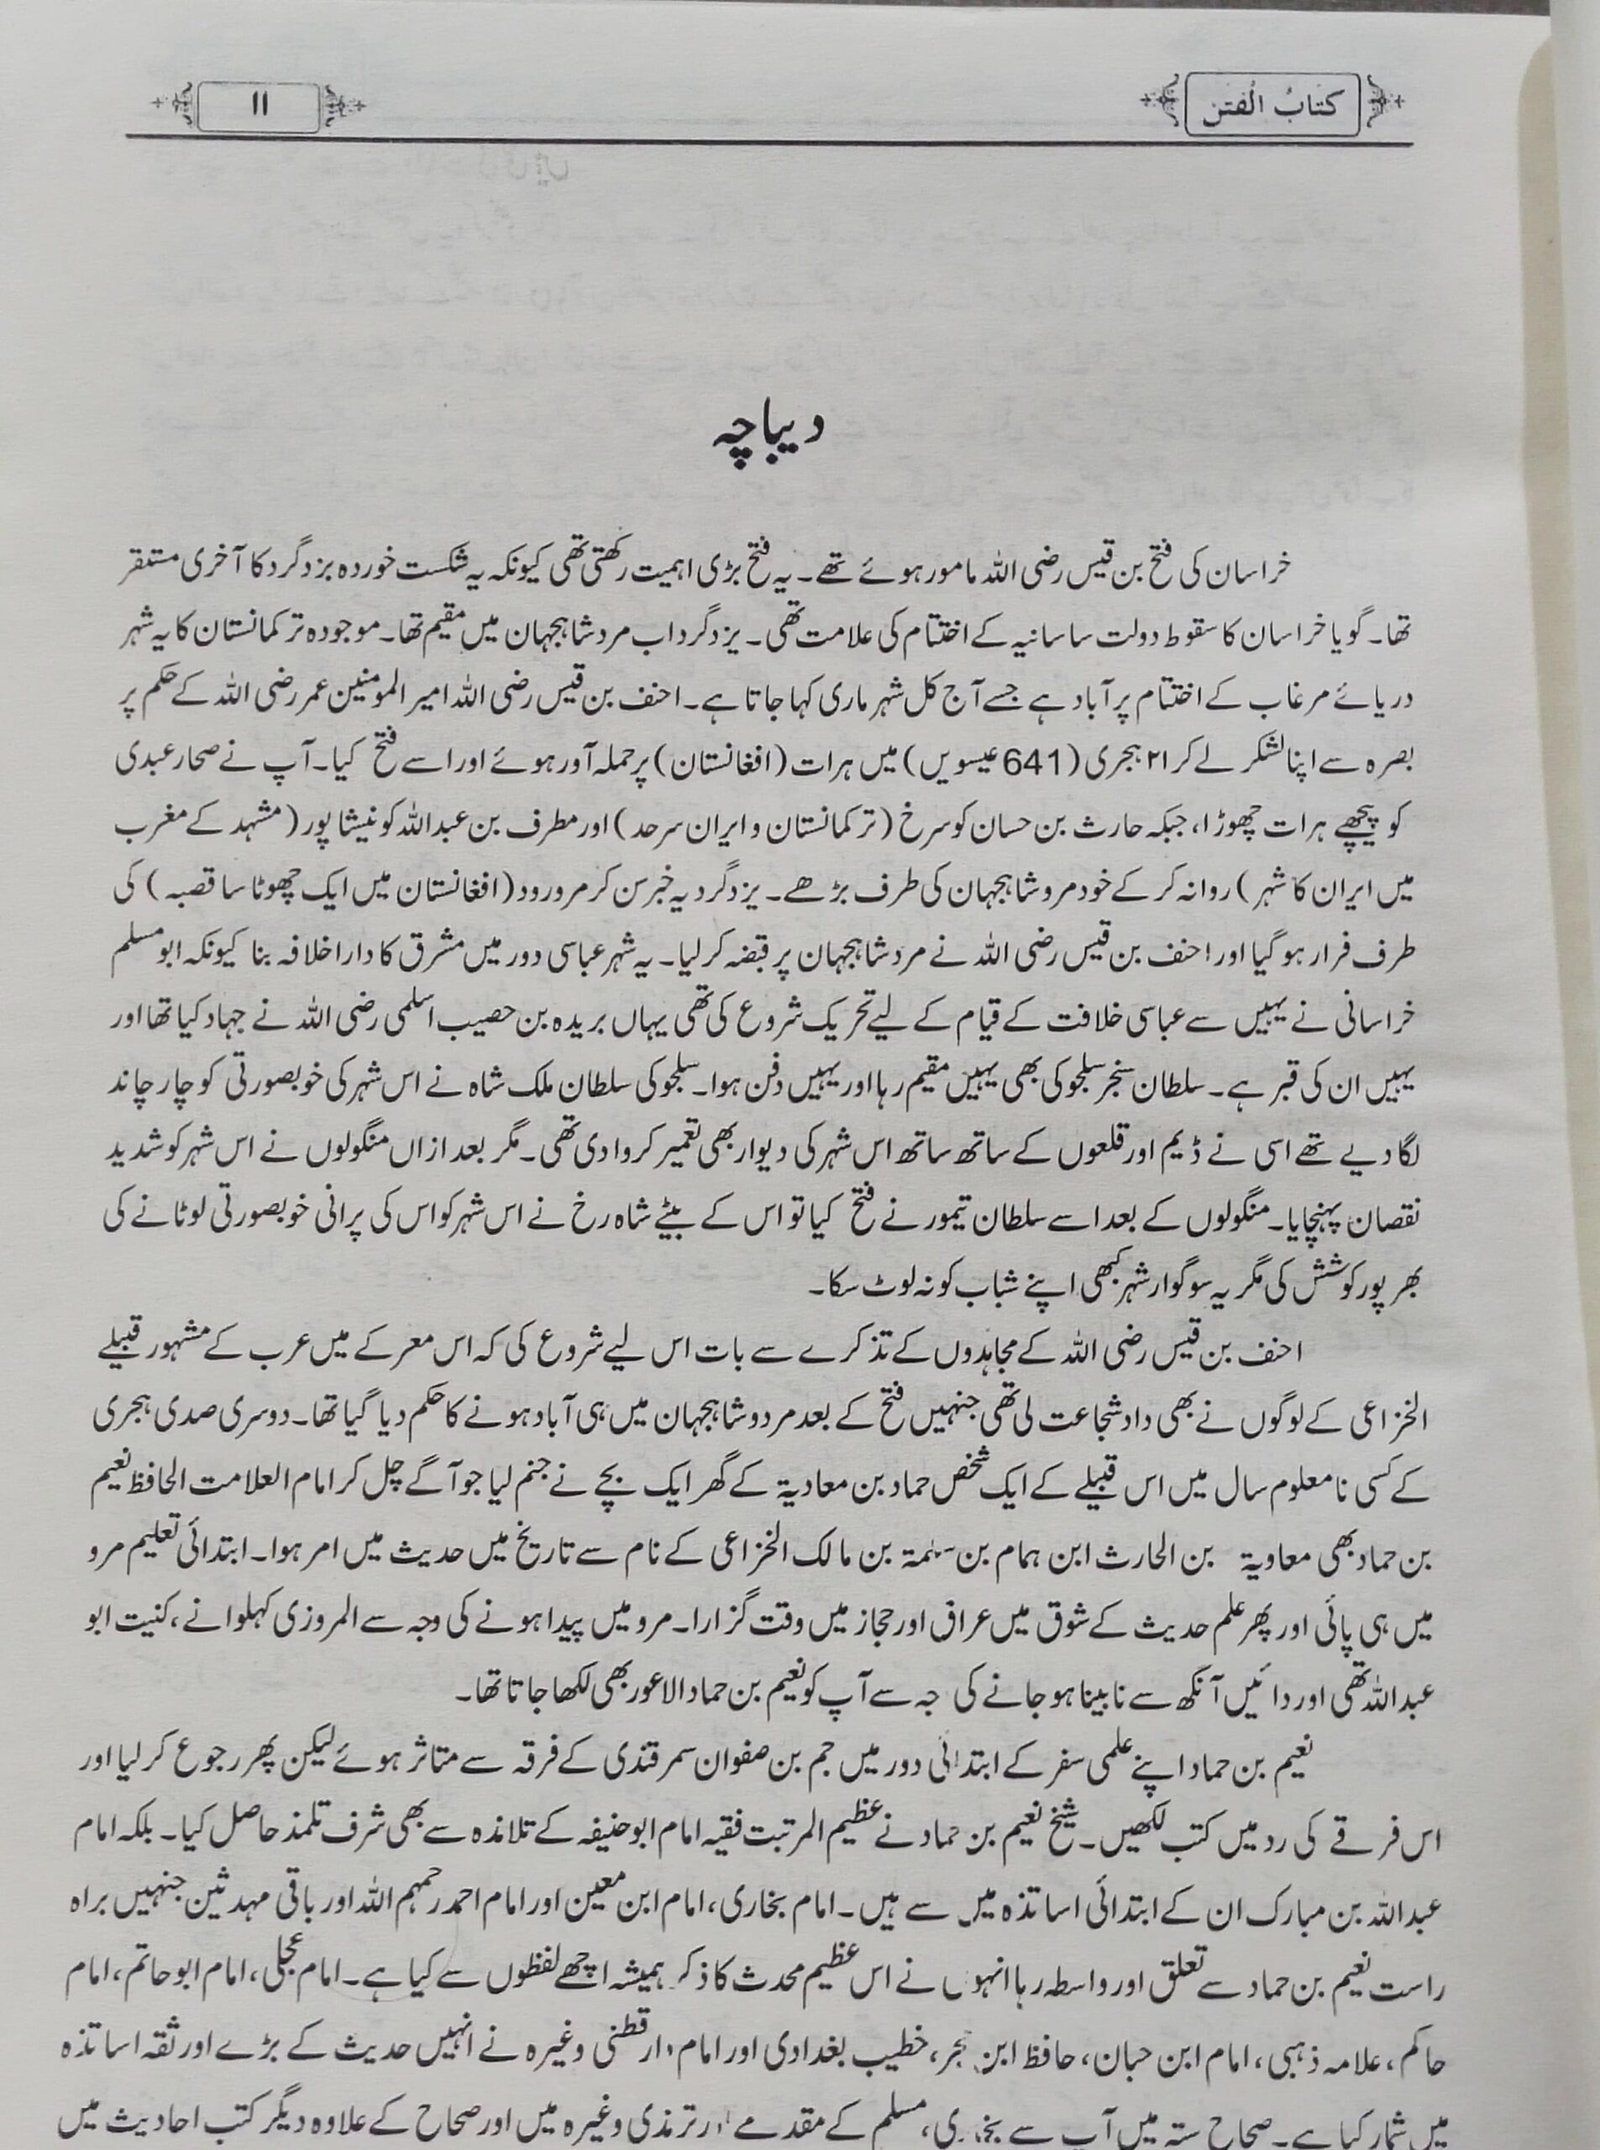 کتابُ الْفِتَن
۱۱
دیباچہ
خراسان کی فتح بن قیس رضی اللہ مامور ہوئے تھے۔ یہ فتح بڑی اہمیت رکھتی تھی کیونکہ یہ شکست خوردہ یزدگرد کا آخری مستقر
تھا۔ گویا خراسان کا سقوط دولت ساسانیہ کے اختتام کی علامت تھی۔ یزدگرد اب مرد شاہجہان میں مقیم تھا۔ موجودہ ترکمانستان کا یہ شہر
دریائے مرغاب کے اختتام پر آباد ہے جسے آج کل شہر ماری کہا جاتا ہے۔ احنف بن قیس رضی اللہ امیر المومنین عمر رضی اللہ کے حکم پر
بصرہ سے اپنا لشکر لے کر ۲۱ ہجری (641 عیسویں) میں ہرات (افغانستان) پر حملہ آور ہوئے اور اسے فتح کیا۔ آپ نے صحار عبدی
کو پیچھے ہرات چھوڑا، جبکہ حارث بن حسان کو سرخ (ترکمانستان و ایران سرحد) اور مطرف بن عبداللہ کو نیشاپور (مشہد کے مغرب
میں ایران کا شہر) روانہ کر کے خود مرو شاہجہان کی طرف بڑھے۔ یزدگرد یہ خبر سن کر مرورود (افغانستان میں ایک چھوٹا سا قصبہ) کی
طرف فرار ہو گیا اور احنف بن قیس رضی اللہ نے مرد شاہجہان پر قبضہ کر لیا۔ یہ شہر عباسی دور میں مشرق کا دارا خلافہ بنا کیونکہ ابو مسلم
خراسانی نے یہیں سے عباسی خلافت کے قیام کے لیے تحریک شروع کی تھی یہاں بریدہ بن حصیب اسلمی رضی اللہ نے جہاد کیا تھا اور
یہیں ان کی قبر ہے۔ سلطان سنجر سلجوکی بھی یہیں مقیم رہا اور یہیں دفن ہوا۔ سلجوکی سلطان ملک شاہ نے اس شہر کی خوبصورتی کو چار چاند
لگا دیے تھے اسی نے ڈیم اور قلعوں کے ساتھ ساتھ اس شہر کی دیوار بھی تعمیر کروا دی تھی۔ مگر بعد ازاں منگولوں نے اس شہر کو شدید
نقصان پہنچایا۔ منگولوں کے بعد اسے سلطان تیمور نے فتح کیا تو اس کے بیٹے شاہ رخ نے اس شہر کو اس کی پرانی خوبصورتی لوٹانے کی
بھر پور کوشش کی مگر یہ سوگوار شہر کبھی اپنے شباب کو نہ لوٹ سکا۔
احنف بن قیس رضی اللہ کے مجاہدوں کے تذکرے سے بات اس لیے شروع کی کہ اس معرکے میں عرب کے مشہور قبیلے
الخزاعی کے لوگوں نے بھی داد شجاعت لی تھی جنہیں فتح کے بعد مردو شاہجہان میں ہی آباد ہونے کا حکم دیا گیا تھا۔ دوسری صدی ہجری
کے کسی نامعلوم سال میں اس قبیلے کے ایک شخص حماد بن معادیۃ کے گھر ایک بچے نے جنم لیا جو آگے چل کر امام العلامت الحافظ نعیم
بن حماد بھی معاویۃ بن الحارث ابن ہمام بن سلمۃ بن مالک الخزاعی کے نام سے تاریخ میں حدیث میں امر ہوا۔ ابتدائی تعلیم مرو
میں ہی پائی اور پھر علم حدیث کے شوق میں عراق اور حجاز میں وقت گزارا۔ مرو میں پیدا ہونے کی وجہ سے المروزی کہلوانے، کنیت ابو
عبداللہ تھی اور دائیں آنکھ سے نابینا ہو جانے کی جہ سے آپ کو نعیم بن حماد الاعور بھی لکھا جاتا تھا۔
نعیم بن حماد اپنے علمی سفر کے ابتدائی دور میں جم بن صفوان سمرقندی کے فرقہ سے متاثر ہوئے لیکن پھر رجوع کر لیا اور
اس فرقے کی رد میں کتب لکھیں۔ شیخ نعیم بن حماد نے عظیم المرتبت فقیہ امام ابو حنیفہ کے تلامذہ سے بھی شرف تلمذ حاصل کیا۔ بلکہ امام
عبداللہ بن مبارک ان کے ابتدائی اساتذہ میں سے ہیں۔ امام بخاری، امام ابن معین اور امام احمد رحمہم اللہ اور باقی مہدثین جنہیں براہ
راست نعیم بن حماد سے تعلق اور واسطہ رہا انہوں نے اس عظیم محدث کا ذکر ہمیشہ اچھے لفظوں سے کیا ہے۔ امام عجلی، امام ابو حاتم، امام
حاکم، علامہ ذہبی، امام ابن حبان، حافظ ابن حجر، خطیب بغدادی اور امام دارقطنی وغیرہ نے انہیں حدیث کے بڑے اور ثقہ اساتذہ
میں شمار کیا ہے۔ صحاح ستہ میں آپ سے بخاری، مسلم کے مقدمے اور ترمذی وغیرہ میں اور صحاح کے علاوہ دیگر کتب احادیث میں